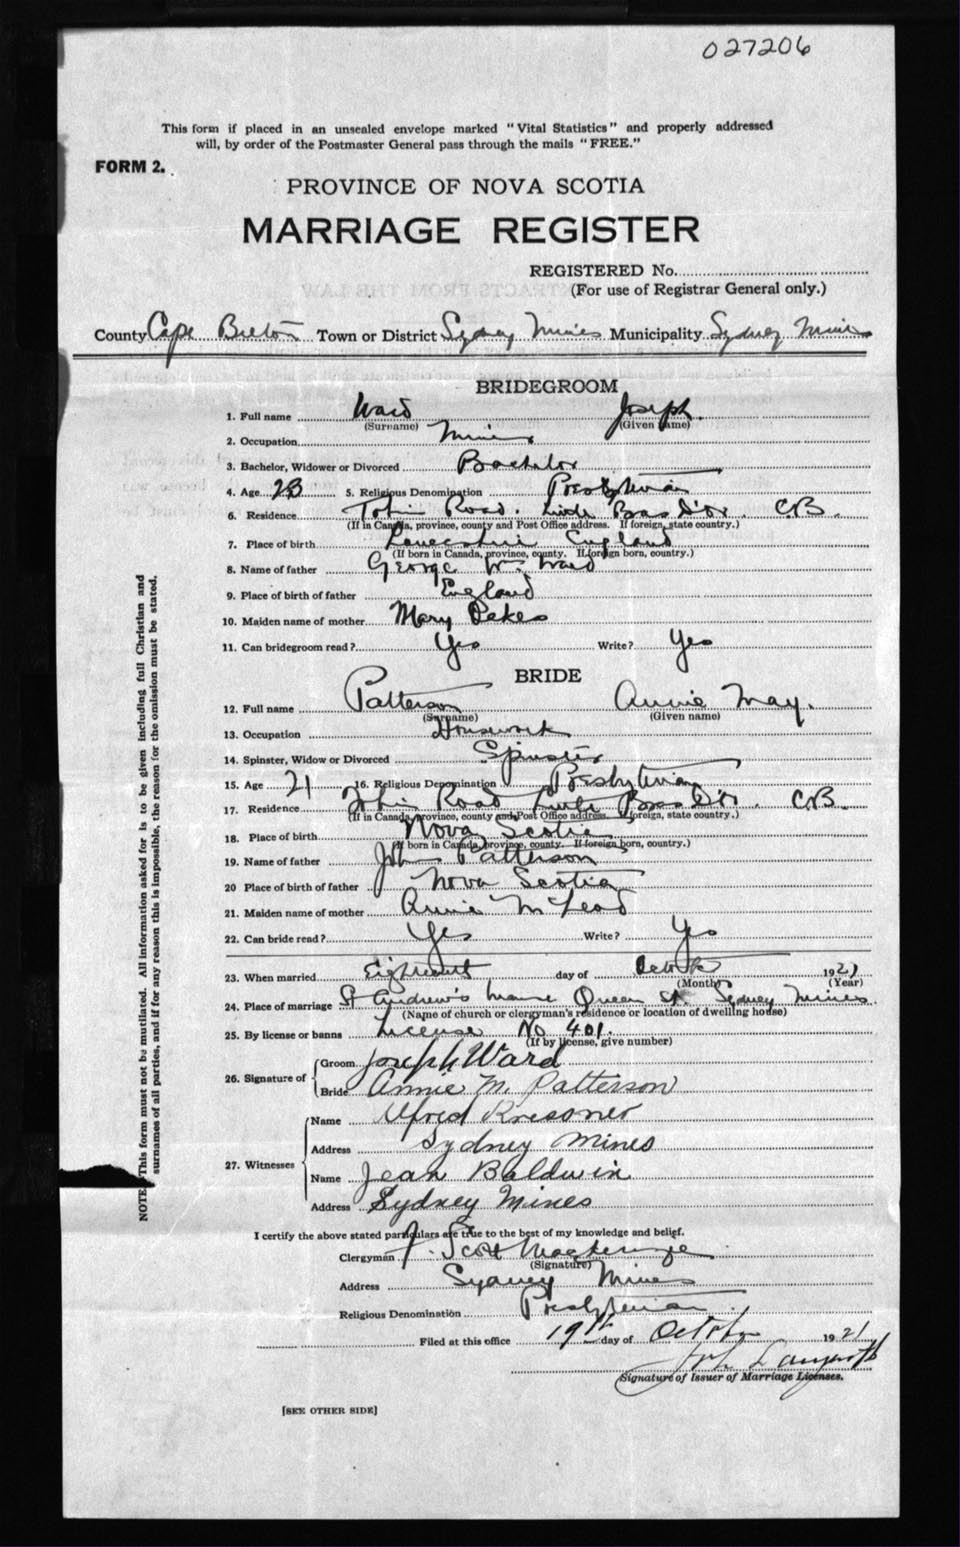 027206
This form if placed in an unsealed envelope marked "Vital Statistics" and properly addressed
will, by order of the Postmaster General pass through the mails "FREE."
FORM 2.
PROVINCE OF NOVA SCOTIA
MARRIAGE REGISTER
REGISTERED No.
(For use of Registrar General only.)
County Cape Breton Town or District Sydney Mines Municipality Sydney Mines
BRIDEGROOM
1. Full name Ward Joseph.
(Surname) (Given name)
2. Occupation Miner
3. Bachelor, Widower or Divorced Bachelor
4. Age 23 5. Religious Denomination Presbyterian
6. Residence Road. Little Bras D'or. C.B.
(If in Canada, province, county and Post Office address. If foreign, state country.)
7. Place of birth Lancashire England
(If born in Canada, province, county. If foreign born, country.)
8. Name of father George Wm Ward
9. Place of birth of father England
10. Maiden name of mother Mary
11. Can bridegroom read? Yes Write? Yes
BRIDE
12. Full name Patterson Annie May.
(Surname) (Given name)
13. Occupation Housework
14. Spinster, Widow or Divorced Spinster
15. Age 21 16. Religious Denomination Presbyterian
17. Residence Road Little Bras D'or. C.B.
(If in Canada, province, county and Post Office address. If foreign, state country.)
18. Place of birth Nova Scotia
(If born in Canada, province, county. If foreign born, country.)
19. Name of father John Patterson
20 Place of birth of father Nova Scotia
21. Maiden name of mother Annie McLeod
22. Can bride read? Yes Write? Yes
23. When married Eighteenth day of October 1921
(Month) (Year)
24. Place of marriage St Andrew's Manse Queen St. Sydney Mines.
(Name of church or clergyman's residence or location of dwelling house)
25. By license or banns License No 401.
(If by license, give number)
26. Signature of
Groom Joseph Ward
Bride Annie M. Patterson
27. Witnesses
Name Alfred
Address Sydney Mines
Name Jean Baldwin
Address Sydney Mines
I certify the above stated particulars are true to the best of my knowledge and belief.
Clergyman Scott Mackenzie
(Signature)
Address Sydney Mines
Religious Denomination Presbyterian.
Filed at this office 19th day of October 1921
Signature of Issuer of Marriage Licenses.
[SEE OTHER SIDE]
NOTE.—This form must not be mutilated. All information asked for is to be given including full Christian and
surnames of all parties, and if for any reason this is impossible, the reason for the omission must be stated.